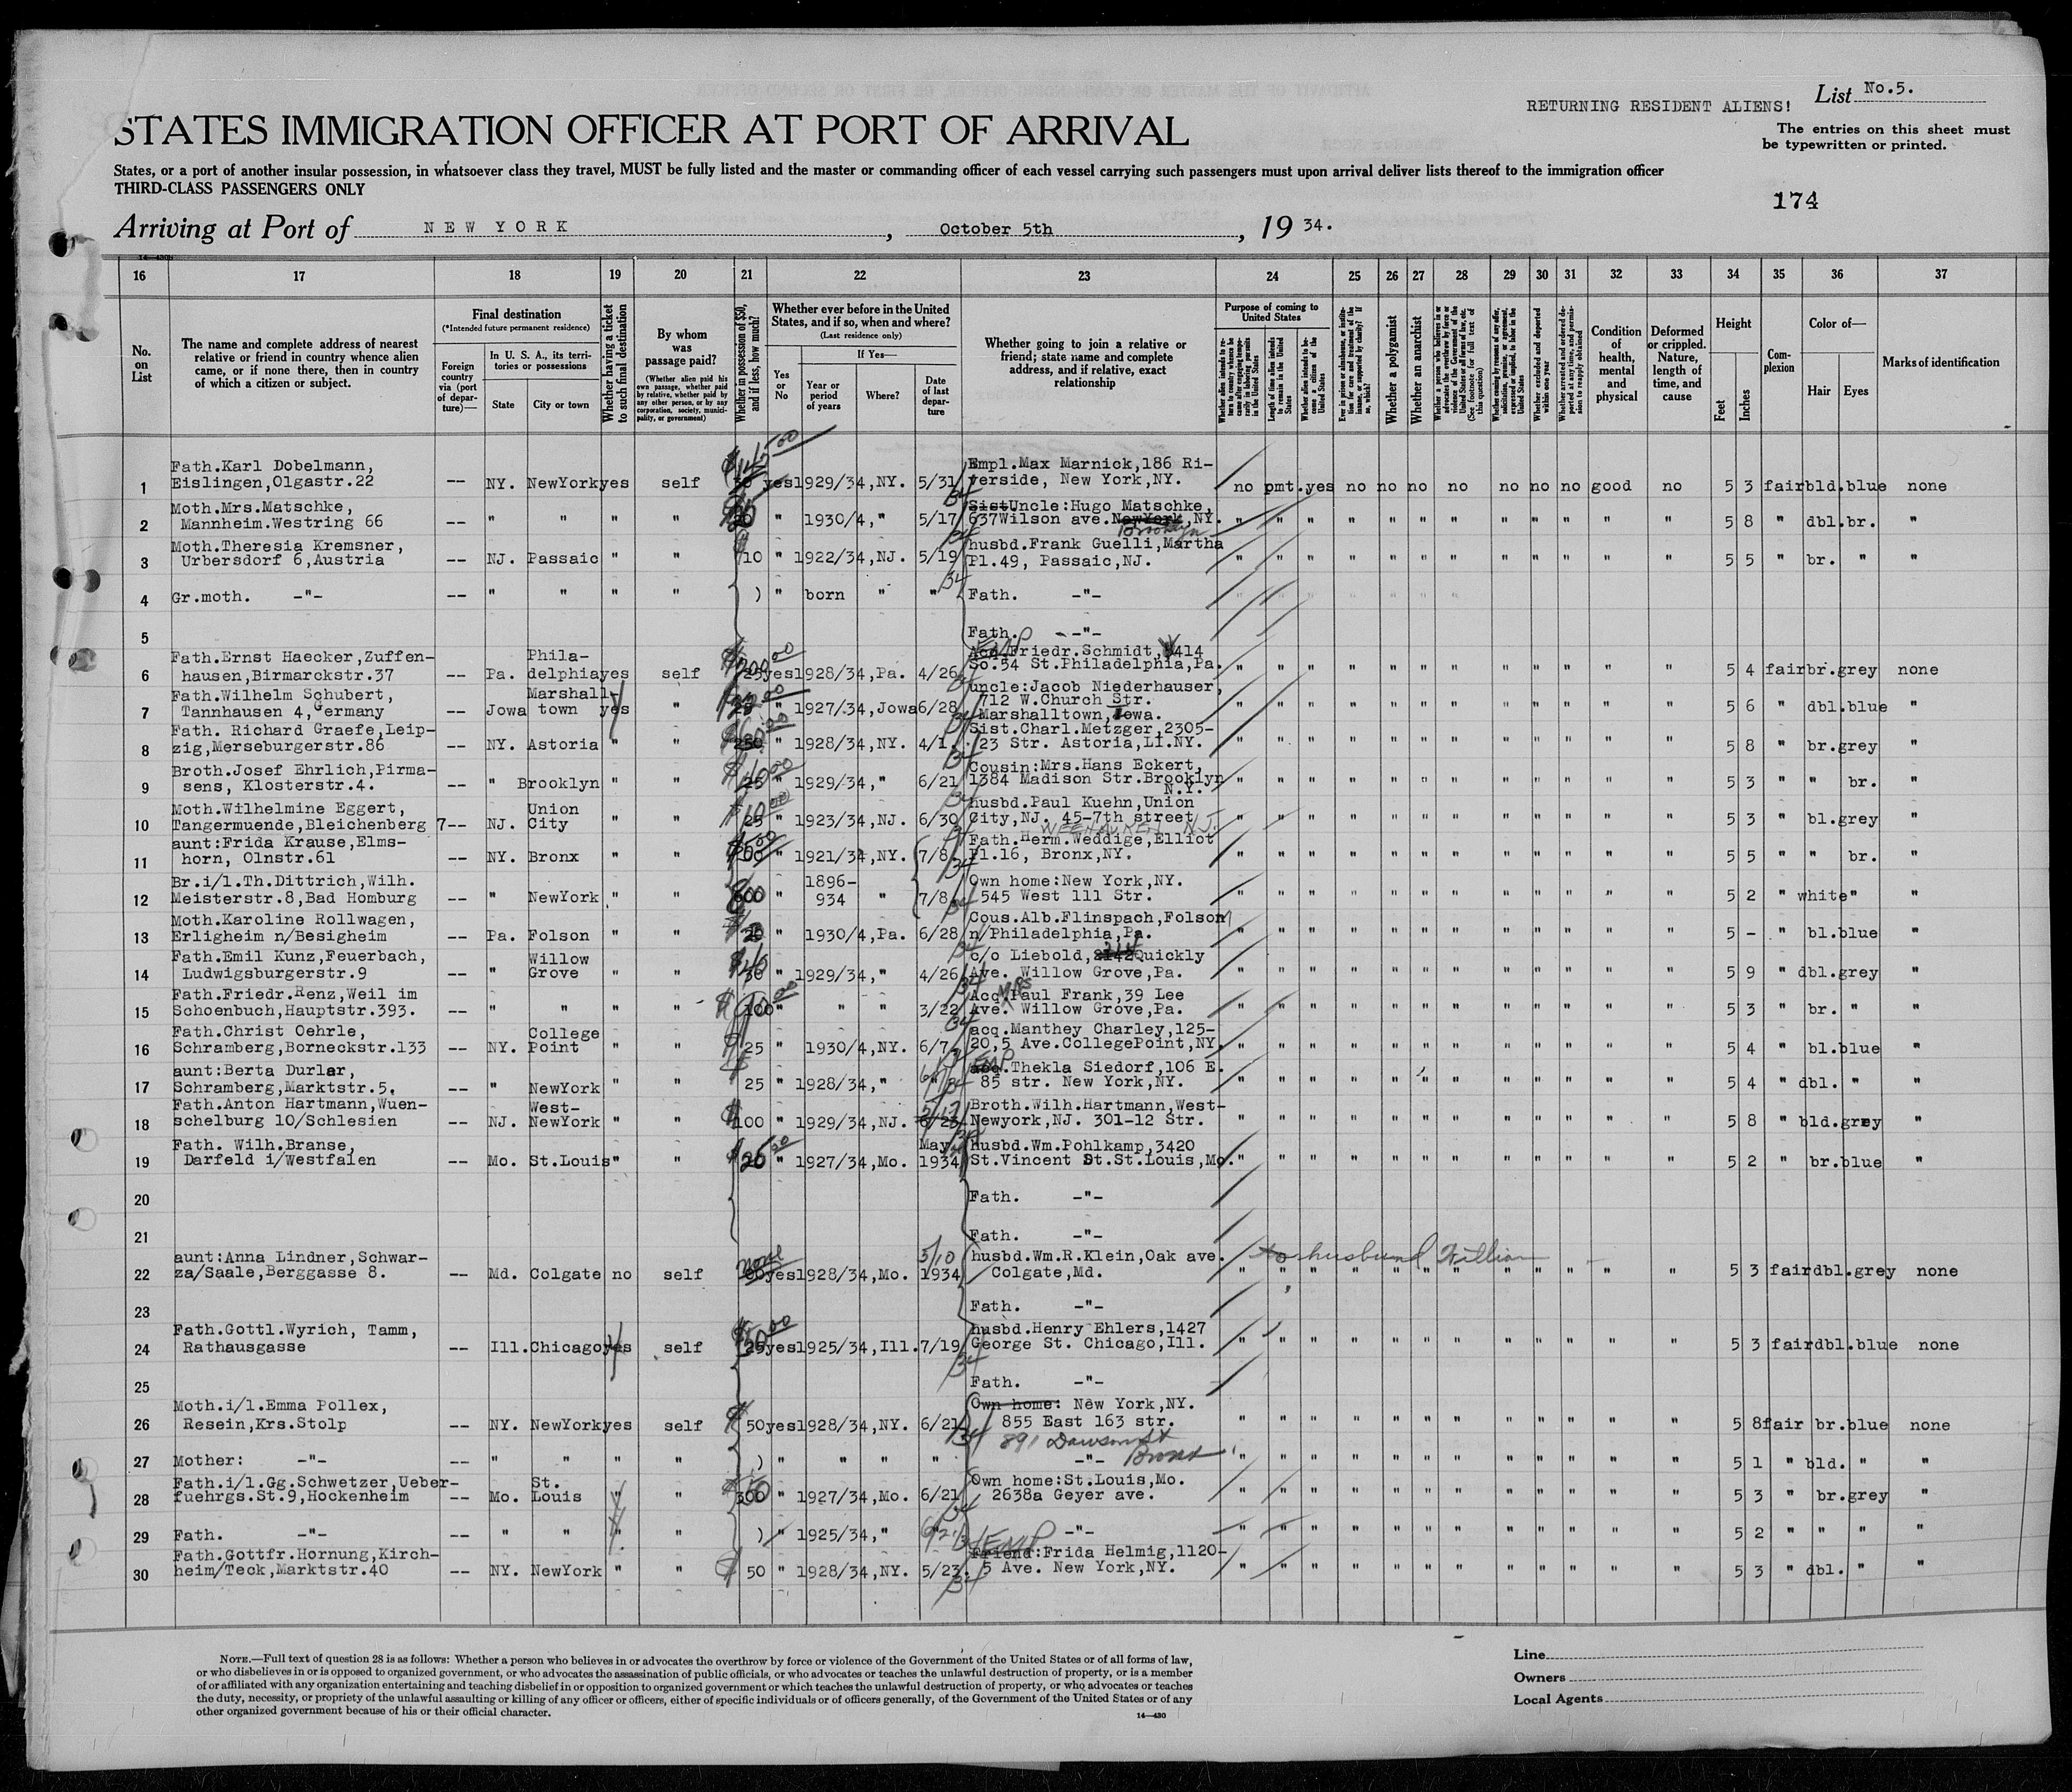 List No.5.
RETURNING RESIDENT ALIENS!
STATES IMMIGRATION OFFICER AT PORT OF ARRIVAL
The entries on this sheet must
be typewritten or printed.
States, or a port of another insular possession, in whatsoever class they travel, MUST be fully listed and the master or commanding officer of each vessel carrying such passengers must upon arrival deliver lists thereof to the immigration officer
THIRD-CLASS PASSENGERS ONLY
174
Arriving at Port of NEW YORK, October 5th, 1934.
16 17 18 19 20 21 22 23 24 25 26 27 28 29 30 31 32 33 34 35 36 37
No. on List
The name and complete address of nearest
relative or friend in country whence alien
came, or if none there, then in country
of which a citizen or subject.
Final destination
(*Intended future permanent residence)
Foreign country via (port of departure)—
In U. S. A., its territories or possessions
State City or town
Whether having a ticket to such final destination
By whom was passage paid?
(Whether alien paid his own passage, whether paid by relative, whether paid by any other person, or by any corporation, society, municipality, or government)
Whether in possession of $50, and if less, how much?
Whether ever before in the United
States, and if so, when and where?
(Last residence only)
Yes or No
If Yes—
Year or period of years
Where?
Date of last departure
Whether going to join a relative or
friend; state name and complete
address, and if relative, exact
relationship
Purpose of coming to United States
Length of time alien intends to remain in the United States
Whether a polygamist
Whether an anarchist
Whether excluded and deported within one year
Condition of health, mental and physical
Deformed or crippled. Nature, length of time, and cause
Height
Feet Inches
Complexion
Color of—
Hair Eyes
Marks of identification
1 Fath.Karl Dobelmann,
Eislingen,Olgastr.22 -- NY. NewYork yes self yes 1929/34,NY. 5/31 Empl.Max Marnick,186 Ri-
verside, New York,NY. no pmt.yes no no no no no no no good no 5 3 fair bld.blue none
2 Moth.Mrs.Matschke,
Mannheim.Westring 66 -- " " " " 20 " 1930/4," 5/17 Sist Uncle:Hugo Matschke,
637Wilson ave.NewYork,NY. Brooklyn 5 8 " dbl.br. "
3 Moth.Theresia Kremsner,
Urbersdorf 6,Austria -- NJ. Passaic " " 10 " 1922/34,NJ. 5/19 husbd.Frank Guelli,Martha
Pl.49, Passaic,NJ. 5 5 " br. " "
4 Gr.moth. -"- -- " " " " ) " born " " Fath. -"-
5 Fath. -"-
6 Fath.Ernst Haecker,Zuffen-
hausen,Birmarckstr.37 -- Pa. Phila-
delphia yes self $200.00 25 yes 1928/34,Pa. 4/26 Acq.Friedr.Schmidt, 414
So.54 St.Philadelphia,Pa. 5 4 fair br.grey none
7 Fath.Wilhelm Schubert,
Tannhausen 4,Germany -- Jowa Marshall-
town yes " " 1927/34,Jowa 6/28 uncle:Jacob Niederhauser,
712 W.Church Str.
Marshalltown,Iowa. 5 6 " dbl.blue "
8 Fath. Richard Graefe,Leip-
zig,Merseburgerstr.86 -- NY. Astoria " " 250 " 1928/34,NY. 4/1 Sist.Charl.Metzger,2305-
23 Str. Astoria,LI.NY. 5 8 " br.grey "
9 Broth.Josef Ehrlich,Pirma-
sens, Klosterstr.4. -- " Brooklyn " " 25 " 1929/34," 6/21 Cousin:Mrs.Hans Eckert,
1384 Madison Str.Brooklyn
N.Y. 5 3 " " br. "
10 Moth.Wilhelmine Eggert,
Tangermuende,Bleichenberg 7-- NJ. Union
City " " 25 " 1923/34,NJ. 6/30 husbd.Paul Kuehn,Union
City,NJ. 45-7th street
WEEHAWKEN N.J. 5 3 " bl.grey "
11 aunt:Frida Krause,Elms-
horn, Olnstr.61 -- NY. Bronx " " " 1921/34,NY. 7/8 Fath.Herm.Weddige,Elliot
Pl.16, Bronx,NY. 5 5 " " br. "
12 Br.i/l.Th.Dittrich,Wilh.
Meisterstr.8,Bad Homburg -- " NewYork " " 600 " 1896-
934 " 7/8 Own home:New York,NY.
545 West 111 Str. 5 2 " white" "
13 Moth.Karoline Rollwagen,
Erligheim n/Besigheim -- Pa. Folson " " 20 " 1930/4,Pa. 6/28 Cous.Alb.Flinspach,Folson
n/Philadelphia,Pa. 5 - " bl.blue "
14 Fath.Emil Kunz,Feuerbach,
Ludwigsburgerstr.9 -- " Willow
Grove " " 30 " 1929/34," 4/26 c/o Liebold, Quickly
Ave. Willow Grove,Pa. 5 9 " dbl.grey "
15 Fath.Friedr.Renz,Weil im
Schoenbuch,Hauptstr.393. -- " " " " 100 " " " 3/22 Acq.MRS Paul Frank,39 Lee
Ave. Willow Grove,Pa. 5 3 " br. " "
16 Fath.Christ Oehrle,
Schramberg,Borneckstr.133 -- NY. College
Point " " 25 " 1930/4,NY. 6/7 acq.Manthey Charley,125-
20,5 Ave.CollegePoint,NY. 5 4 " bl.blue "
17 aunt:Berta Durlar,
Schramberg,Marktstr.5. -- " NewYork " " 25 " 1928/34," EMP acq.Thekla Siedorf,106 E.
85 str. New York,NY. 5 4 " dbl. " "
18 Fath.Anton Hartmann,Wuen-
schelburg 10/Schlesien -- NJ. West-
NewYork " " 100 " 1929/34,NJ. 6/23 Broth.Wilh.Hartmann,West-
Newyork,NJ. 301-12 Str. 5 8 " bld.grey "
19 Fath. Wilh.Branse,
Darfeld i/Westfalen -- Mo. St.Louis " " " 1927/34,Mo. May
1934 husbd.Wm.Pohlkamp,3420
St.Vincent St.St.Louis,Mo. 5 2 " br.blue "
20 Fath. -"-
21 Fath. -"-
22 aunt:Anna Lindner,Schwar-
za/Saale,Berggasse 8. -- Md. Colgate no self none yes 1928/34,Mo. 5/10
1934 husbd.Wm.R.Klein,Oak ave.
Colgate,Md. to husband William 5 3 fair dbl.grey none
23 Fath. -"-
24 Fath.Gottl.Wyrich, Tamm,
Rathausgasse -- Ill. Chicago yes self 25 yes 1925/34,Ill. 7/19 husbd.Henry Ehlers,1427
George St. Chicago,Ill. 5 3 fair dbl.blue none
25 Fath. -"-
26 Moth.i/l.Emma Pollex,
Resein,Krs.Stolp -- NY. NewYork yes self 50 yes 1928/34,NY. 6/21 Own home: New York,NY.
855 East 163 str.
891 Dawson St
Bronx 5 8 fair br.blue none
27 Mother: -"- -- " " " " ) " " " " -"- 5 1 " bld. " "
28 Fath.i/l.Gg.Schwetzer,Ueber-
fuehrgs.St.9,Hockenheim -- Mo. St.
Louis " " 300 " 1927/34,Mo. 6/21 Own home:St.Louis,Mo.
2638a Geyer ave. 5 3 " br.grey "
29 Fath. -"- -- " " " " ) " 1925/34," 6/21 -"- 5 2 " " " "
30 Fath.Gottfr.Hornung,Kirch-
heim/Teck,Marktstr.40 -- NY. NewYork " " $ 50 " 1928/34,NY. 5/23 EMP Friend:Frida Helmig,1120-
5 Ave. New York,NY. 5 3 " dbl. " "
NOTE.—Full text of question 28 is as follows: Whether a person who believes in or advocates the overthrow by force or violence of the Government of the United States or of all forms of law,
or who disbelieves in or is opposed to organized government, or who advocates the assassination of public officials, or who advocates or teaches the unlawful destruction of property, or is a member
of or affiliated with any organization entertaining and teaching disbelief in or opposition to organized government or which teaches the unlawful destruction of property, or who advocates or teaches
the duty, necessity, or propriety of the unlawful assaulting or killing of any officer or officers, either of specific individuals or of officers generally, of the Government of the United States or of any
other organized government because of his or their official character.
14—430
Line
Owners
Local Agents